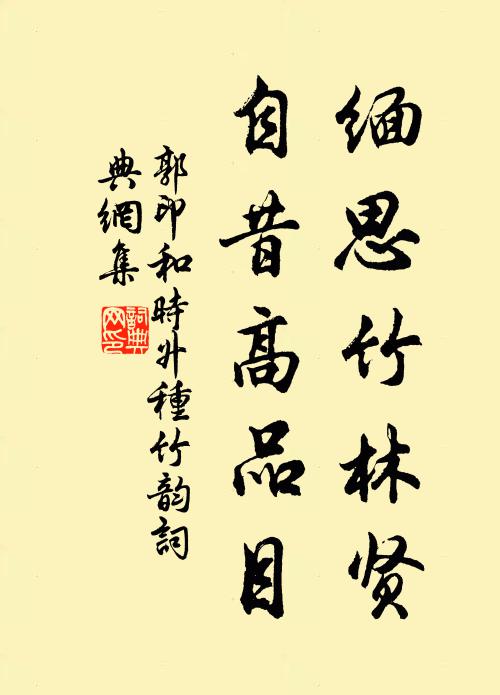 缅思竹林贤
自昔高品目
郭印和時外種竹韵詞
典網集
詞典网印